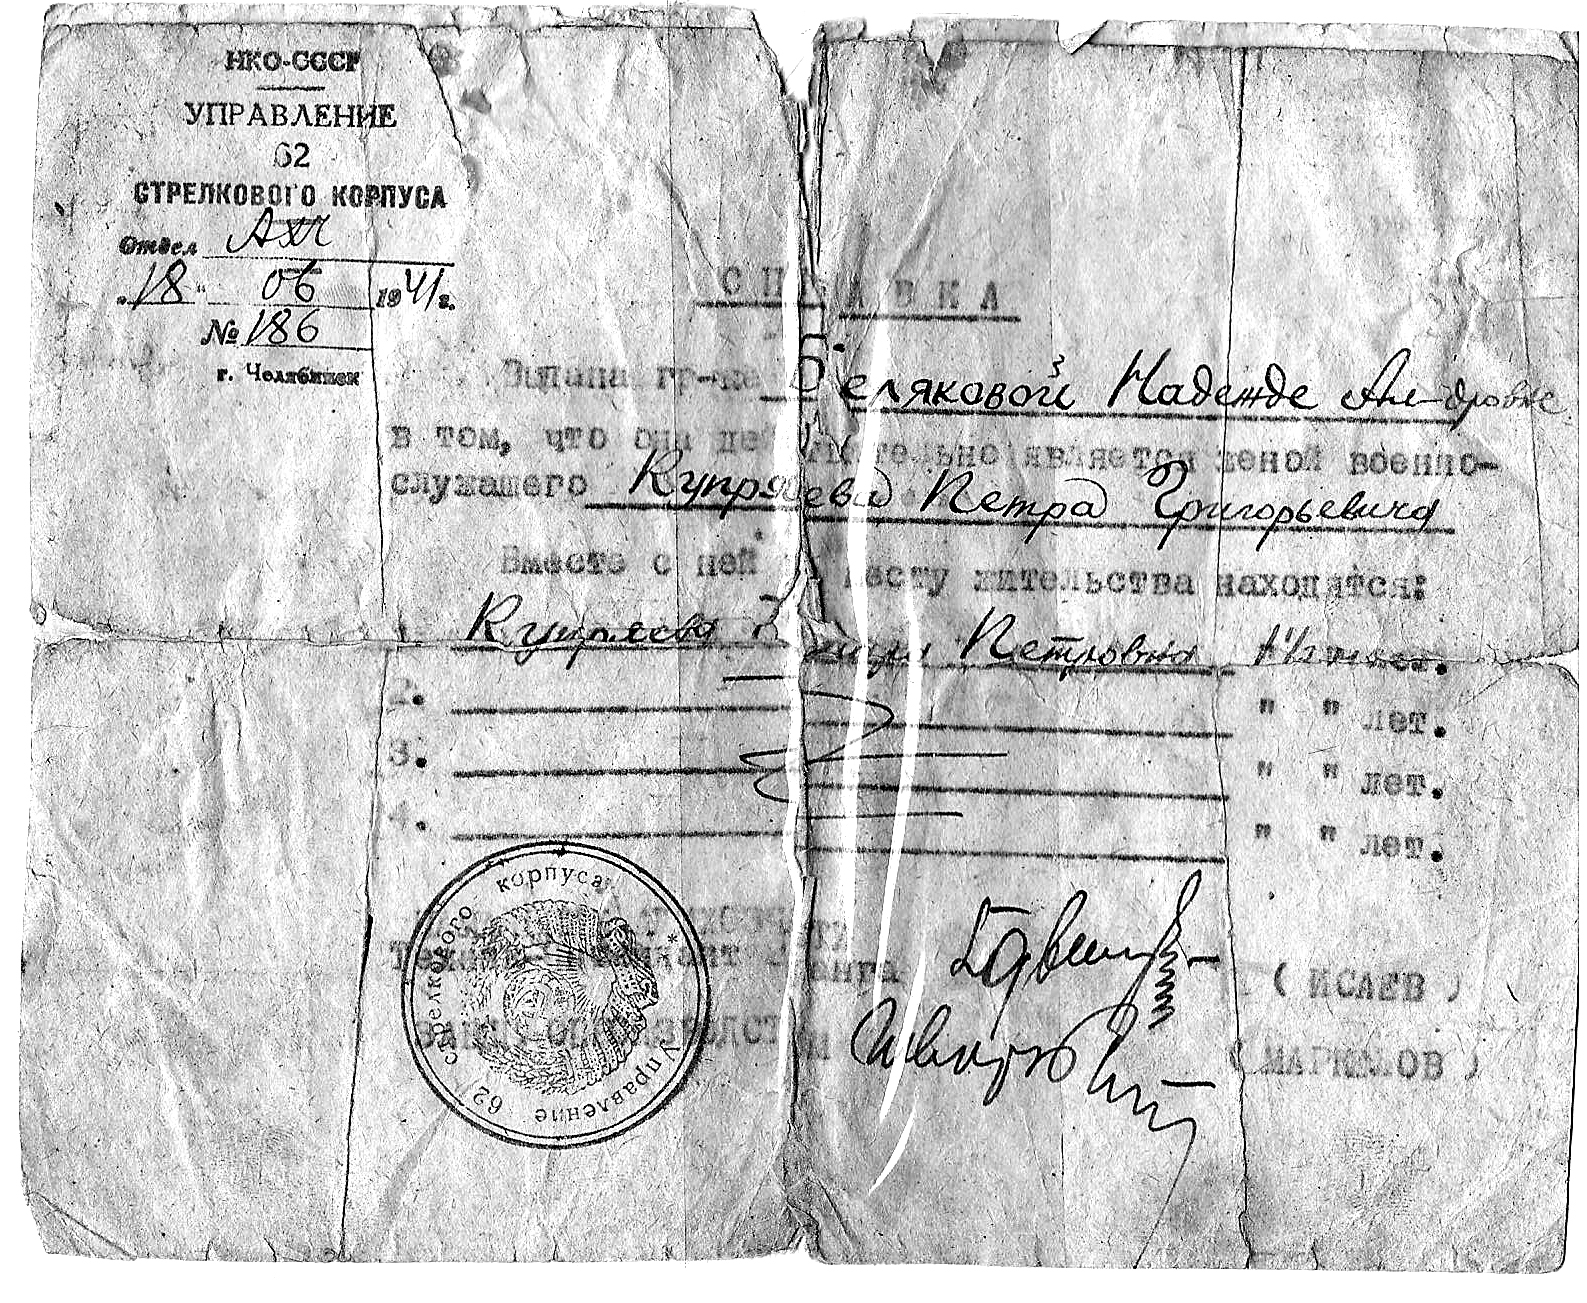 НКО-СССР
УПРАВЛЕНИЕ
62
СТРЕЛКОВОГО КОРПУСА
Отдел АХЧ
„18“ 06 1941 г.
№ 186
г. Челябинск
СПРАВКА
Выдана гр-ке Беляковой Надежде Ал-дровне
в том, что она действительно является женой военно-
служащего Купряева Петра Григорьевича
Вместе с ней по месту жительства находятся:
Купряева Петровна 1 1/2
2. " " лет.
3. " " лет.
4. " " лет.
( ИСАЕВ )
Зав. делопроизводством
Управление 62 стрелкового корпуса